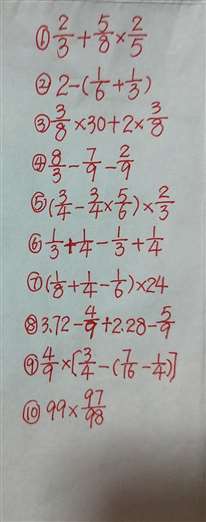 ① 2/3 + 5/8 × 2/5
② 2-(1/6 + 1/3)
③ 3/8 × 30 + 2 × 3/8
④ 8/3 - 7/9 - 2/9
⑤ (3/4 - 3/4 × 5/6) × 2/3
⑥ 1/3 + 1/4 - 1/3 + 1/4
⑦ (1/8 + 1/4 - 1/6) × 24
⑧ 3.72 - 4/9 + 2.28 - 5/9
⑨ 4/9 × [3/4 - (7/16 - 1/4)]
⑩ 99 × 97/98